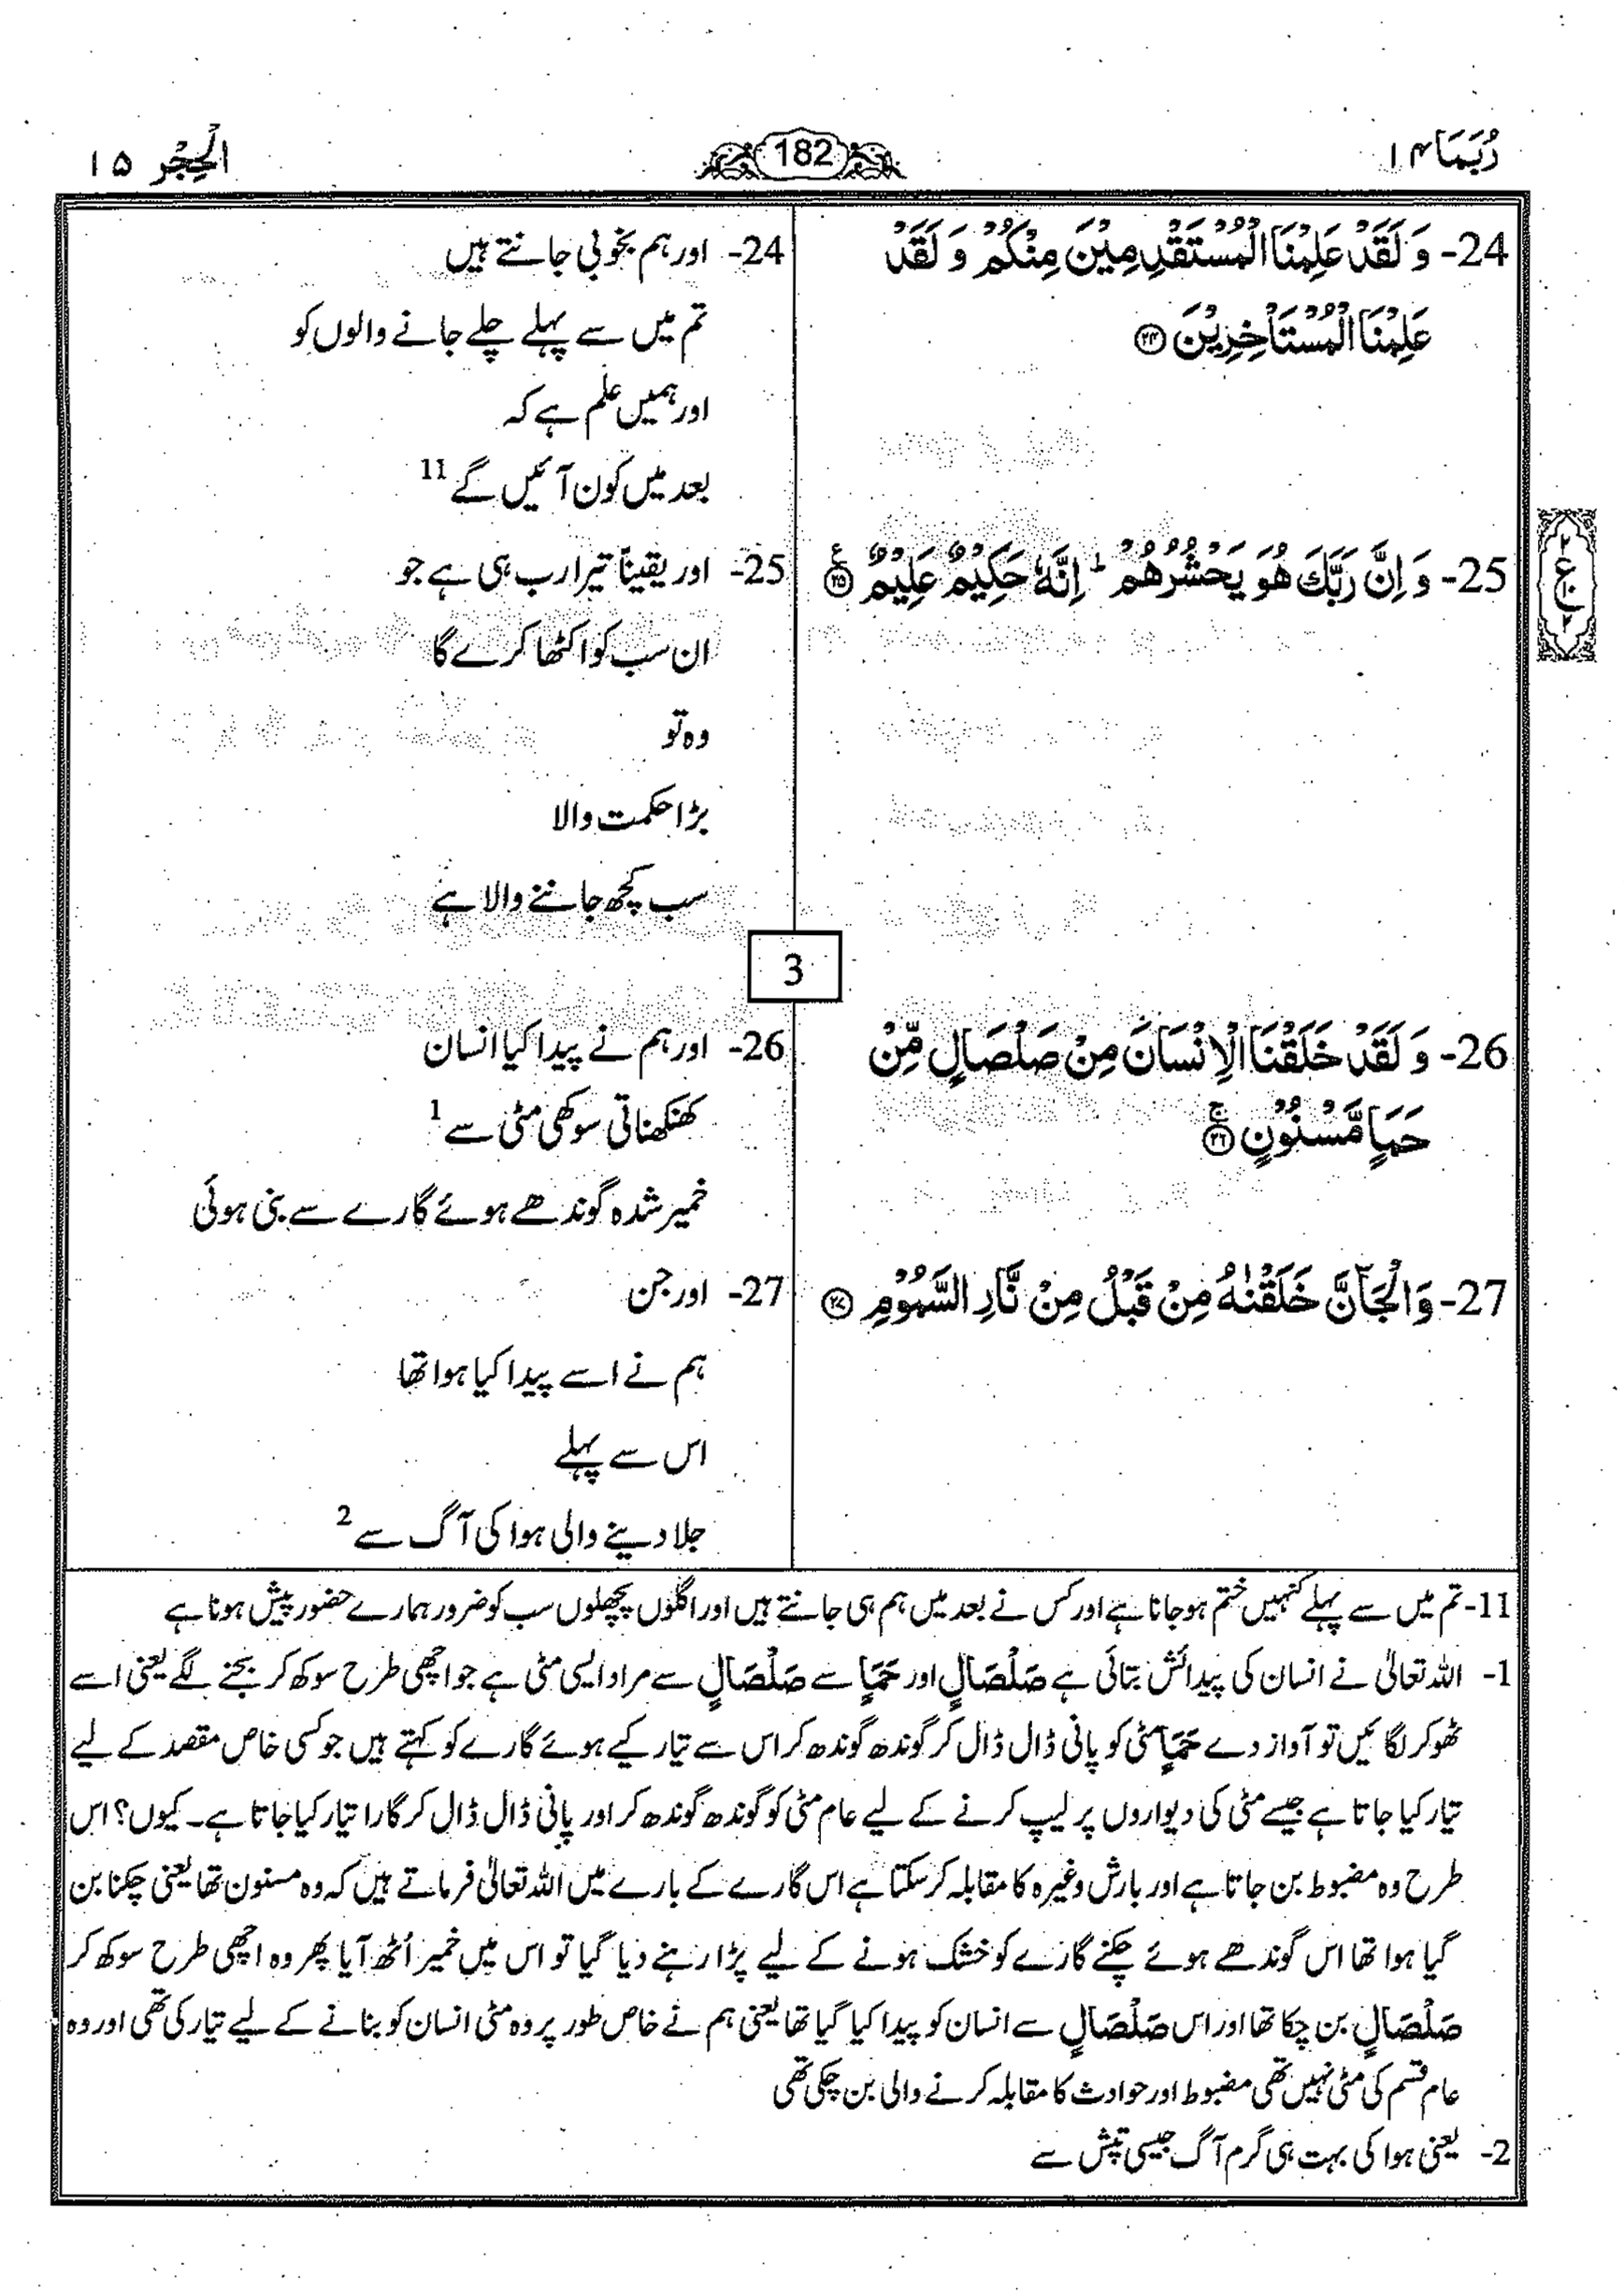 رُبَمَا ۱۴
182
الْحِجْر ۱۵
24- وَ لَقَدْ عَلِمْنَا الْمُسْتَقْدِمِيْنَ مِنْكُمْ وَ لَقَدْ
عَلِمْنَا الْمُسْتَاْخِرِيْنَ ۲۴
24- اور ہم بخوبی جانتے ہیں
تم میں سے پہلے چلے جانے والوں کو
اور ہمیں علم ہے کہ
بعد میں کون آئیں گے 11
25- وَ اِنَّ رَبَّكَ هُوَ يَحْشُرُهُمْ ؕ اِنَّهٗ حَكِيْمٌ عَلِيْمٌ ۲۵ ع
25- اور یقیناً تیرا رب ہی ہے جو
ان سب کو اکٹھا کرے گا
وہ تو
بڑا حکمت والا
سب کچھ جاننے والا ہے
۲
ع
۲
3
26- وَ لَقَدْ خَلَقْنَا الْاِنْسَانَ مِنْ صَلْصَالٍ مِّنْ
حَمَاٍ مَّسْنُوْنٍ ۲۶ ج
26- اور ہم نے پیدا کیا انسان
کھنکھناتی سوکھی مٹی سے 1
خمیر شدہ گوندھے ہوئے گارے سے بنی ہوئی
27- وَالْجَآنَّ خَلَقْنٰهُ مِنْ قَبْلُ مِنْ نَّارِ السَّمُوْمِ ۲۷
27- اور جن
ہم نے اسے پیدا کیا ہوا تھا
اس سے پہلے
جلا دینے والی ہوا کی آگ سے 2
11- تم میں سے پہلے کنہیں ختم ہو جانا ہے اور کس نے بعد میں ہم ہی جانتے ہیں اور اگلوں پچھلوں سب کو ضرور ہمارے حضور پیش ہونا ہے
1- اللہ تعالیٰ نے انسان کی پیدائش بتائی ہے صَلْصَالٍ اور حَمَاٍ سے صَلْصَالٍ سے مراد ایسی مٹی ہے جو اچھی طرح سوکھ کر بجنے لگے یعنی اسے
ٹھوکر لگائیں تو آواز دے حَمَاٍ مٹی کو پانی ڈال ڈال کر گوندھ گوندھ کر اس سے تیار کیے ہوئے گارے کو کہتے ہیں جو کسی خاص مقصد کے لیے
تیار کیا جاتا ہے جیسے مٹی کی دیواروں پر لیپ کرنے کے لیے عام مٹی کو گوندھ گوندھ کر اور پانی ڈال ڈال کر گارا تیار کیا جاتا ہے۔ کیوں؟ اس
طرح وہ مضبوط بن جاتا ہے اور بارش وغیرہ کا مقابلہ کر سکتا ہے اس گارے کے بارے میں اللہ تعالیٰ فرماتے ہیں کہ وہ مسنون تھا یعنی چکنا بن
گیا ہوا تھا اس گوندھے ہوئے چکنے گارے کو خشک ہونے کے لیے پڑا رہنے دیا گیا تو اس میں خمیر اُٹھ آیا پھر وہ اچھی طرح سوکھ کر
صَلْصَالٍ بن چکا تھا اور اس صَلْصَالٍ سے انسان کو پیدا کیا گیا تھا یعنی ہم نے خاص طور پر وہ مٹی انسان کو بنانے کے لیے تیار کی تھی اور وہ
عام قسم کی مٹی نہیں تھی مضبوط اور حوادث کا مقابلہ کرنے والی بن چکی تھی
2- یعنی ہوا کی بہت ہی گرم آگ جیسی تپش سے